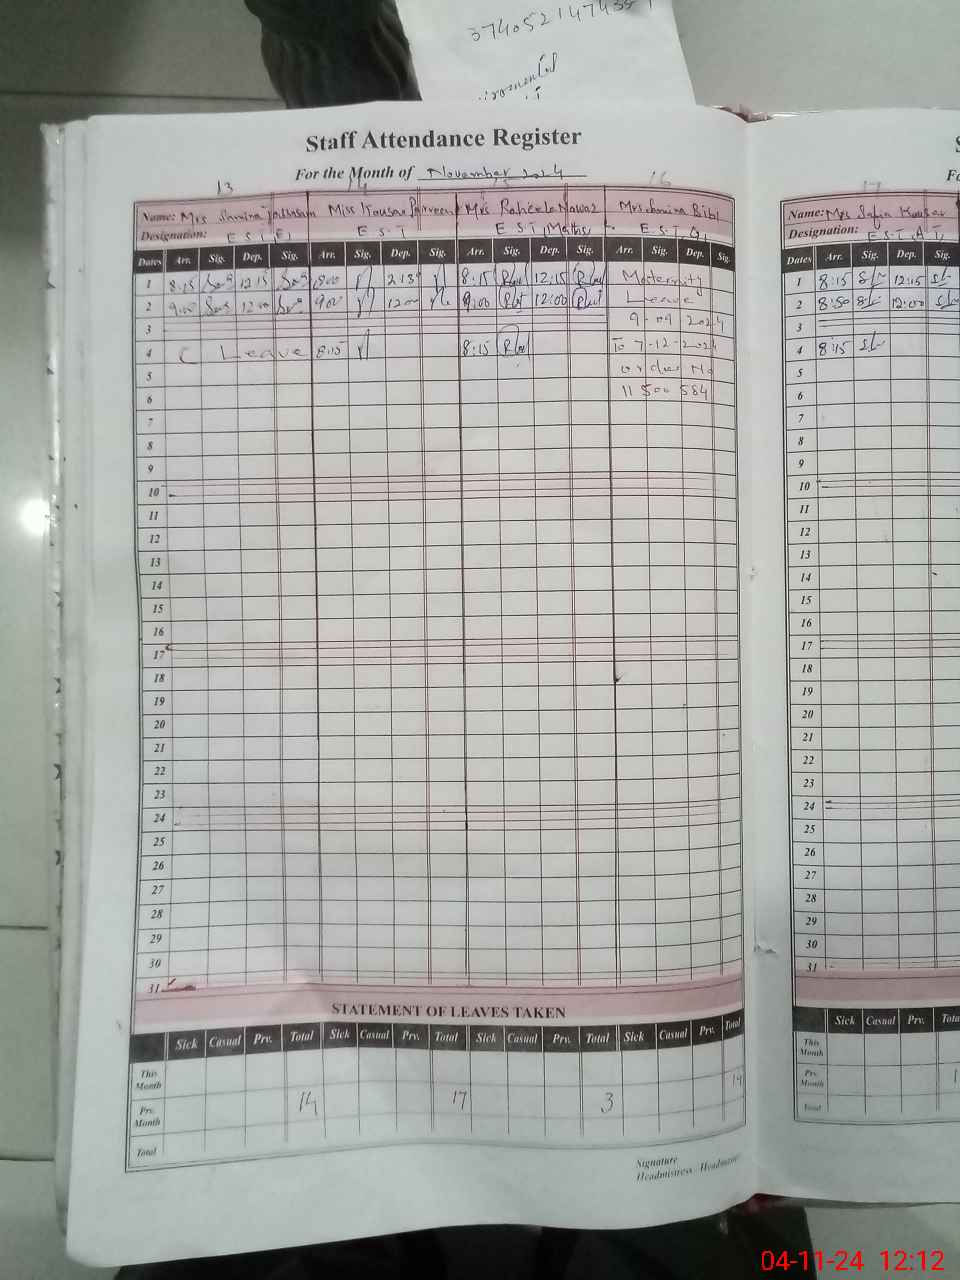 0740521474351
Staff Attendance Register
For the Month of November 2024
13 14 15 16 17
Name: Mrs Miss Kousar Parveen Mrs Raheela Nawaz Mrs Samina Bibi Name: Mrs Safia Kousar
Designation: E S T E S T E S T (Maths) E S T Designation: E S T
Dates Arr. Sig. Dep. Sig. Arr. Sig. Dep. Sig. Arr. Sig. Dep. Sig. Arr. Sig. Dep. Sig. Dates Arr. Sig. Dep. Sig.
1 8:15 12 15 8:00 2:15 8:15 12:15 Maternity 1 8:15 12:15
2 9:00 12:00 9:00 12:00 9:00 12:00 Leave 2 8:50 12:00
3 9-09 2024 3
4 C Leave 8:15 8:15 To 7-12-2024 4 8:15
5 order No 5
6 11 500 584 6
7 7
8 8
9 9
10 10
11 11
12 12
13 13
14 14
15 15
16 16
17 17
18 18
19 19
20 20
21 21
22 22
23 23
24 24
25 25
26 26
27 27
28 28
29 29
30 30
31 31
STATEMENT OF LEAVES TAKEN
Sick Casual Prv. Total Sick Casual Prv. Total Sick Casual Prv. Total Sick Casual Prv. Total Sick Casual Prv.
This Month This Month
Prv. Month 14 17 3 Prv. Month
Total Total
Signature
Headmistress / Headmaster
04-11-24 12:12